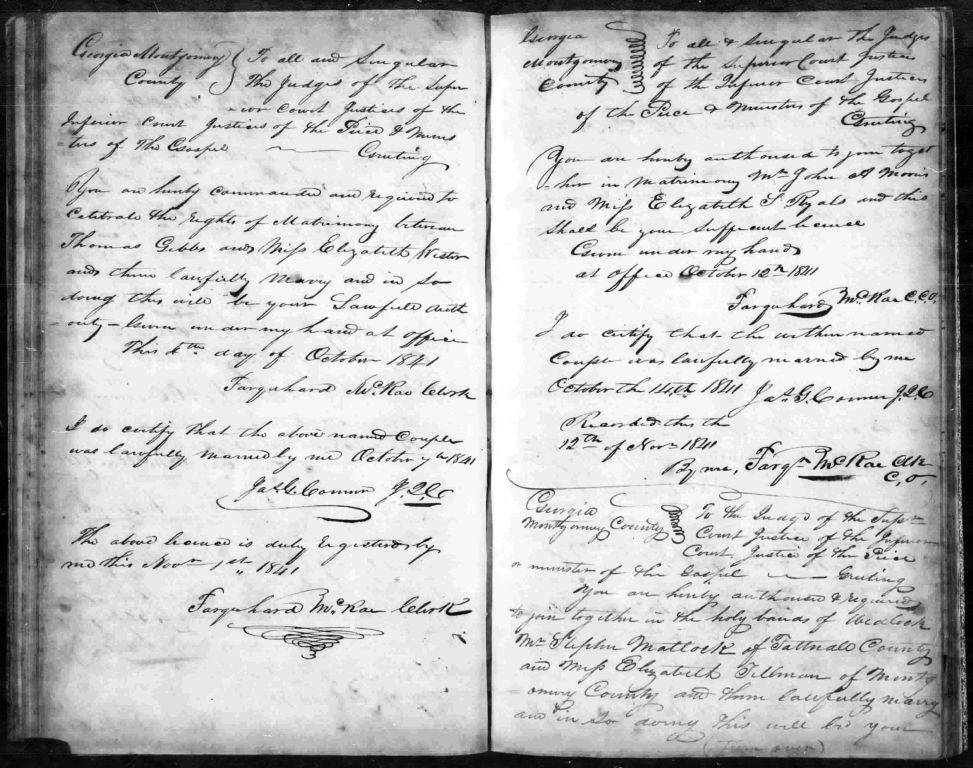 Georgia Montgomery To all and Singular
County The Judges of the Supe
rior Court Justices of the
Inferior Court Justices of the Peice & Minis
ters of The Gospel Greeting
You are hereby commanded and required to
Celebrate the Rights of Matrimony between
Thomas Gibbs and Miss Elizabeth Wester
and them lawfully Marry and in so
doing this will be your Lawfull Auth
ority Given under my hand at office
This day of October 1841
Farquhard McRae Clerk
I do certify that the above named Couple
was lawfully married by me October 7th 1841
Jas G. Connor J.I.C
The above licence is duly Registered by
me this Novr 1st 1841
Farquhard McRae Clerk
Georgia To all & Singular the Judges
Montgomery of the Superior Court Justices
County of the Inferior Court Justices
of the Peice & Ministers of the Gospel
Greeting
You are hereby authorised to join toget
her in Matrimony Mr John A Morris
and Miss Elizabeth S Ryals and this
Shall be your Sufficient licence
Given under my hand
at office October 12th 1841
Farquhard McRae C.C.O.
I do certify that the within named
Couple was lawfully married by me
October the 14th 1841 Jas G. Connor J.I.C
Recorded this the
12th of Novr 1841
By me, Farqr McRae Clk
C, O,
Georgia To the Judge of the Supr
Montgomery County Court Justice of the Inferior
Court, Justice of the Peice
or minister of the Gospel Greeting
You are hereby authorised & required
to join together in the holy bands of Wedlock
Mr Stephen Mattock of Tattnall County
and Miss Elizabeth Tillman of Montg
omery County and them lawfully marry
and in so doing This will be your
(turn over)